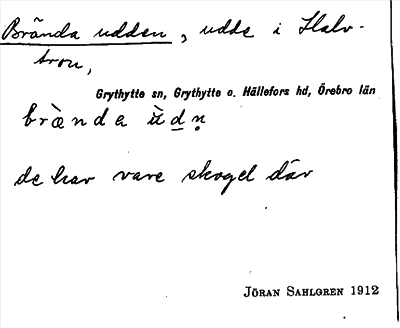 Brända udden, udde i Halv-
tron,
Grythytte sn, Grythytte o. Hällefors hd, Örebro län
bræ̀nda ùdn̥
de har vare skogel där
JÖRAN SAHLGREN 1912